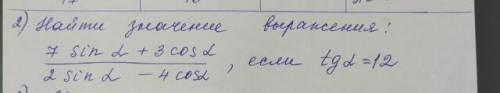 2) Найти значение выражения:
7 sin α + 3 cos α
2 sin α - 4 cos α , если tg α = 12